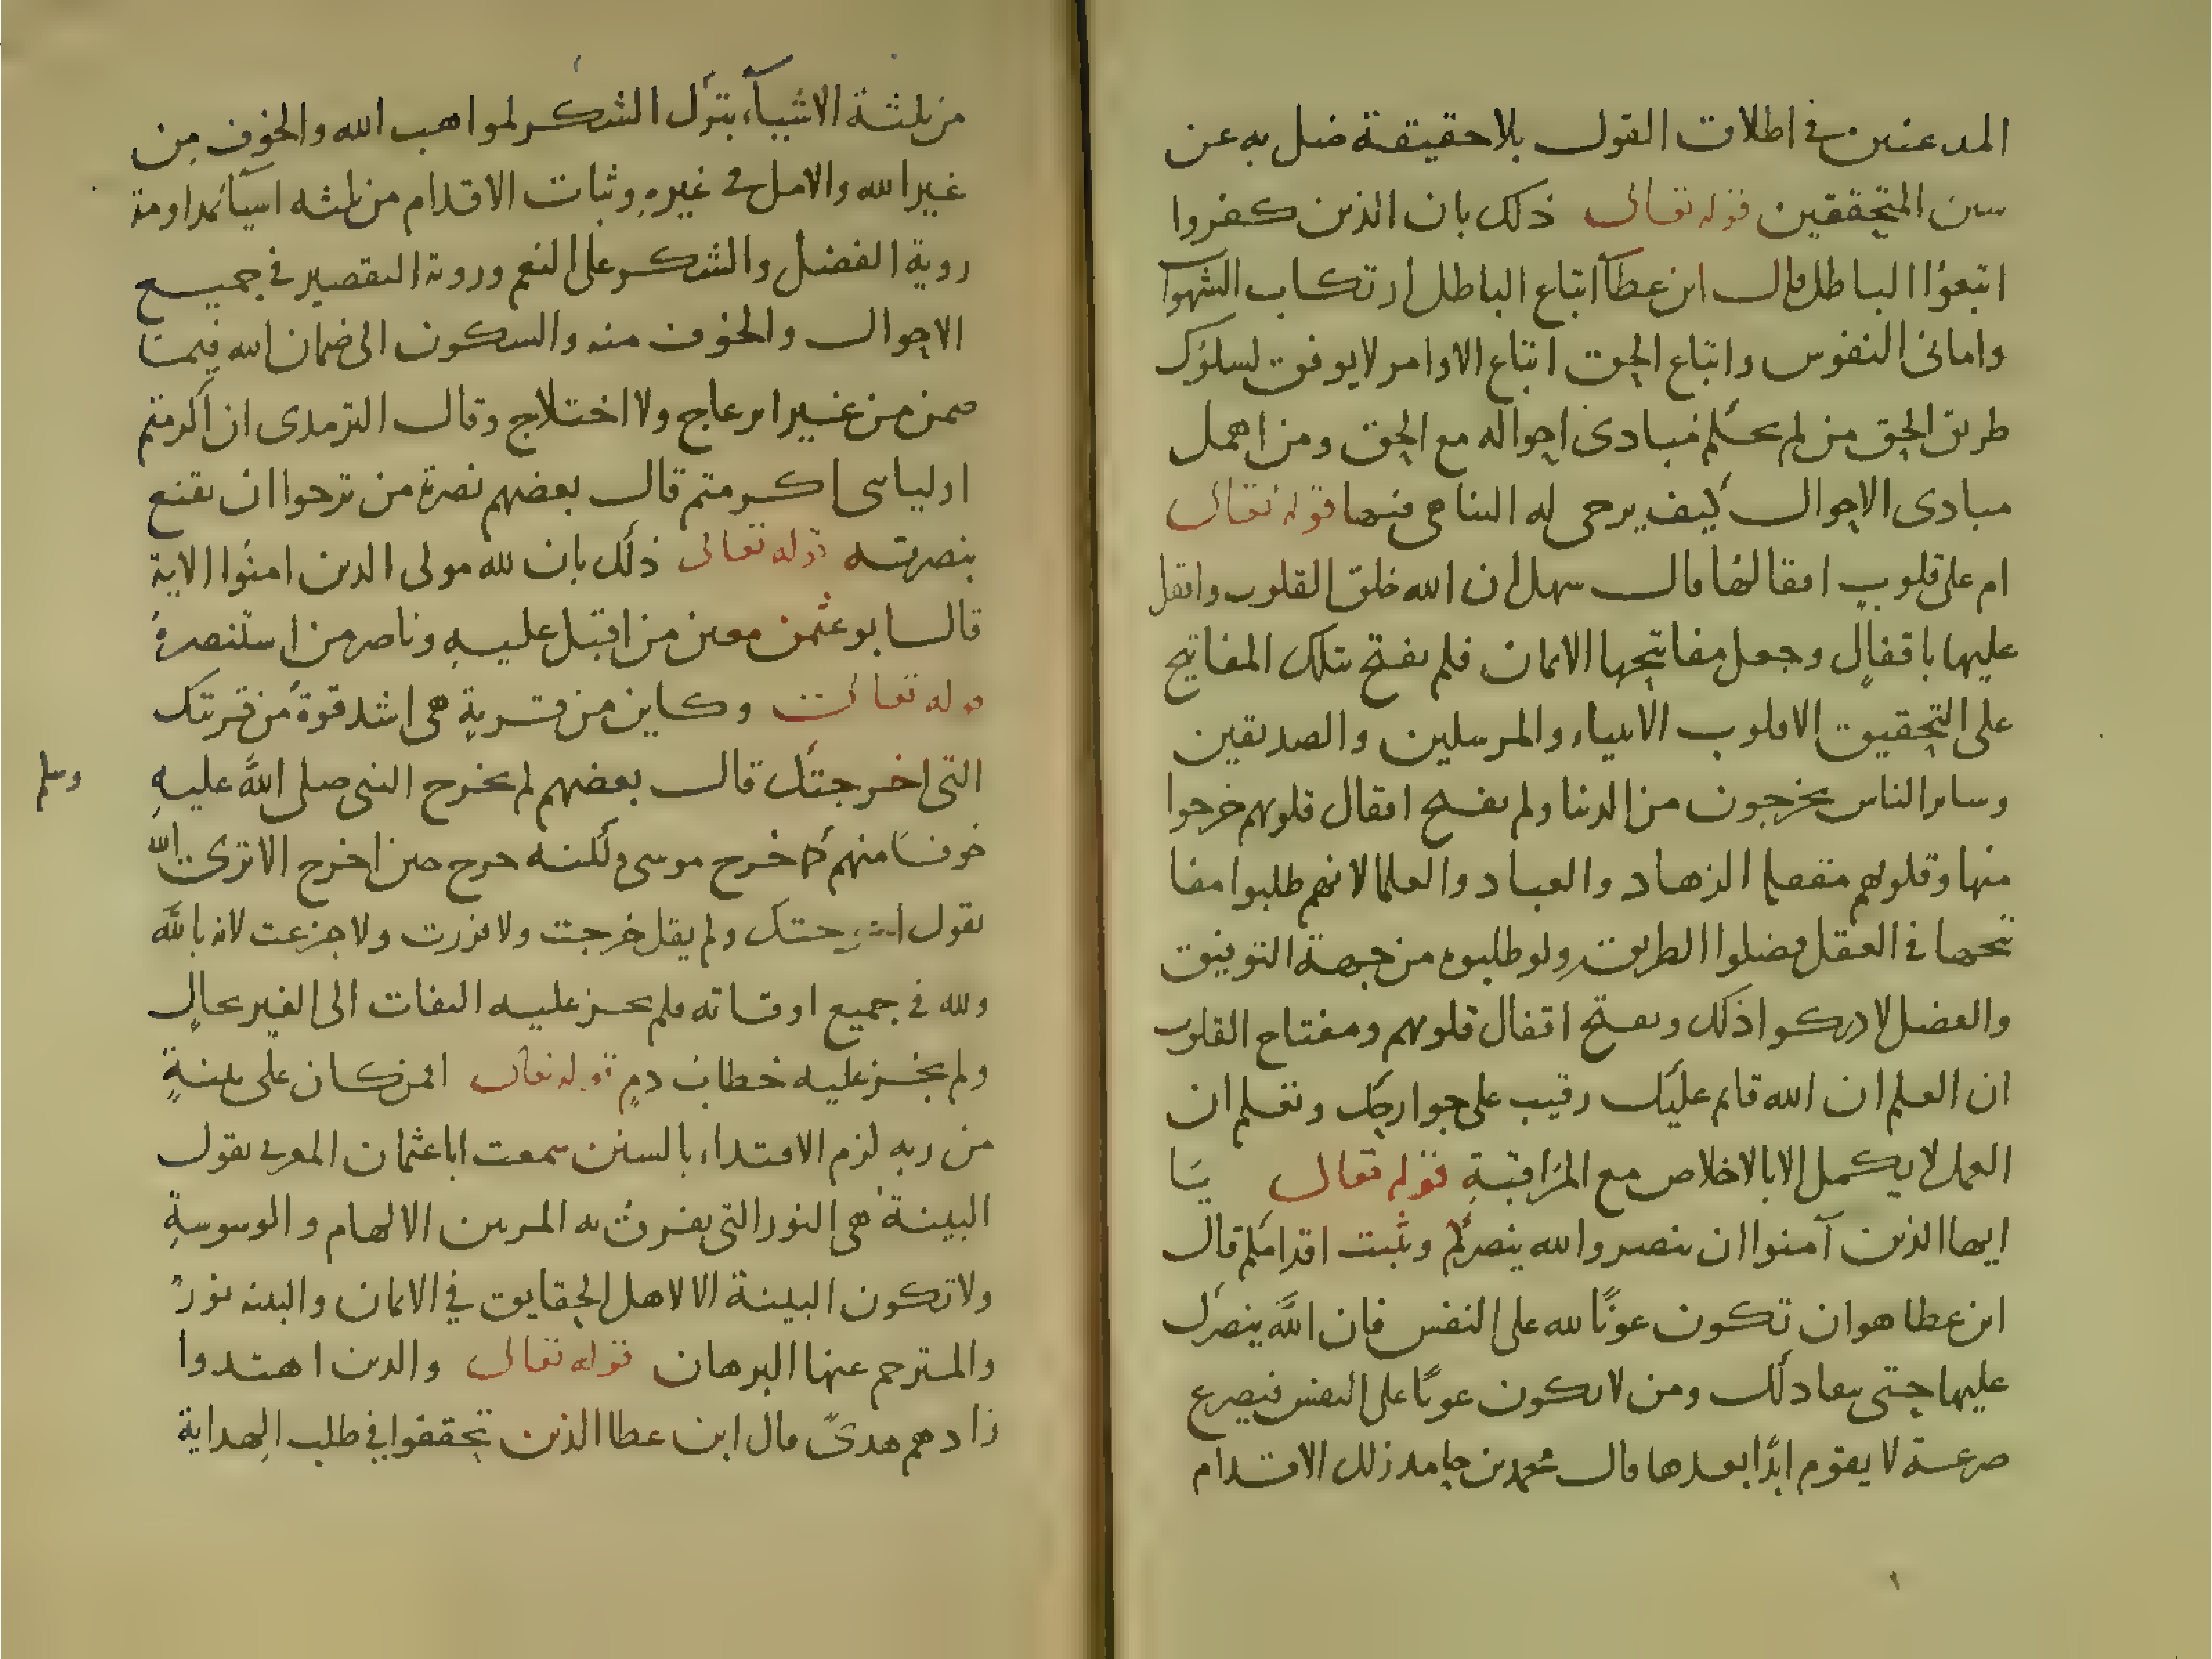 المدعنين في اطلاق القول بلا حقيقة ضل به عن
سنن المتحققين قوله تعالى ذلك بان الذين كفروا
اتبعوا الباطل قال ابن عطآ اتباع الباطل ارتكاب الشهوا
واماني النفوس واتباع الحق اتباع الاوامر لا يوفق لسلوك
طريق الحق من لم يحكم مبادى احواله مع الحق ومن اهمل
مبادى الاحوال كيف يرجى له التناهى فيها قوله تعالى
ام على قلوبٍ اقفالها قال سهل ان الله خلق القلوب واقفل
عليها باقفالٍ وجعل مفاتيحها الايمان فلم يفتح بتلك المفاتيح
على التحقيق الا قلوب الانبياء والمرسلين والصديقين
وساير الناس يخرجون من الدنيا ولم يفتح اقفال قلوبهم خرجوا
منها وقلوبهم مقفلة الزهاد والعباد والعلما لانهم طلبوا مفا
تحها في العقل فضلوا الطريق ولو طلبوه من جهة التوفيق
والفضل لادركوا ذلك ويفتح اقفال قلوبهم ومفتاح القلوب
ان العلم ان الله قايم عليك رقيب على جوارحك وتعلم ان
العمل لا يكمل الا بالاخلاص مع المراقبةِ قوله تعالى يَا
ايها الذين آمنوا ان تنصروا الله ينصركم ويثبت اقدامكم قال
ابن عطا هو ان تكون عونًا لله على النفس فان اللّه ينصرك
عليها حتى ينقاد لك ومن لا يكون عونًا على النفس فيصرع
صرعة لا يقوم ابدًا بعدها قال محمد بن حامد زلل الاقدام
من ثلثة الاشيآء بترك الشكر لمواهب الله والخوف مِن
غير الله والامل في غيرهِ وثبات الاقدام من ثلثه اشيآ بمداومة
روية الفضل والشكر على النعم وروية التقصير في جميع
الاحوال والخوف منه والسكون الى ضمان الله فيما
ضمن من غير انزعاج ولا اختلاج وقال الترمدى ان اكرمتم
اوليايى اكرمتم قال بعضهم نصرة من ترجوا ان تقنع
بنصرته قوله تعالى ذلك بان لله مولى الدين امنُوا الاية
قال ابو عثمن معين من اقبل عليهِ وناصر من استنصرهُ
قوله تعالى وكاين من قريةٍ هى اشد قوةً من قريتك
التى اخرجتك قال بعضهم لم يخرج النبى صلى اللّه عليهِ وسلم
خوفًا منهم كما خرج موسى ولكنه خرج حين اخرج الا ترى اللّه
يقول اخرجتك ولم يقل خرجت ولا فررت ولا جزعت لانه باللّه
ولله في جميع اوقاته فلم يجز عليه التفات الى الغير بحالٍ
ولم يجز عليه خطاب ذمٍ قوله تعالى افمن كان على بينةٍ
من ربه لزم الاقتداء بالسنن سمعت ابا عثمان المغربى يقول
البينة هى النور التى يفرق به المرء بين الالهام والوسوسةِ
ولا تكون البينة الا لاهل الحقايق في الايمان والبينه نورٌ
والمترجم عنها البرهان قوله تعالى والدين اهتدوا
زادهم هدىً قال ابن عطا الذين تحققوا في طلب الهداية